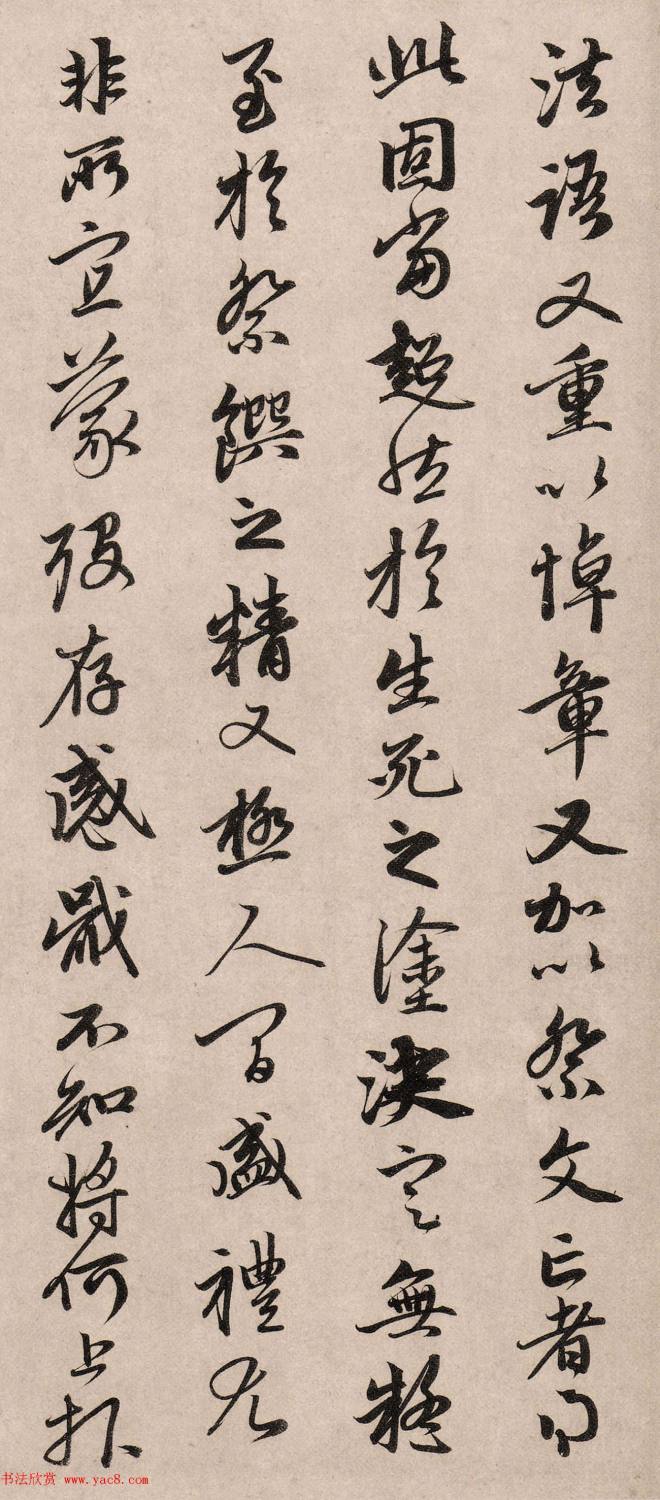 法語又重以悼章又加以祭文亡者得
此固當超然於生死之塗決定無疑
至於祭饌之精又極人間盛禮尤
非所宜蒙歿存感戢不知將何上報
书法欣赏 www.yac8.com